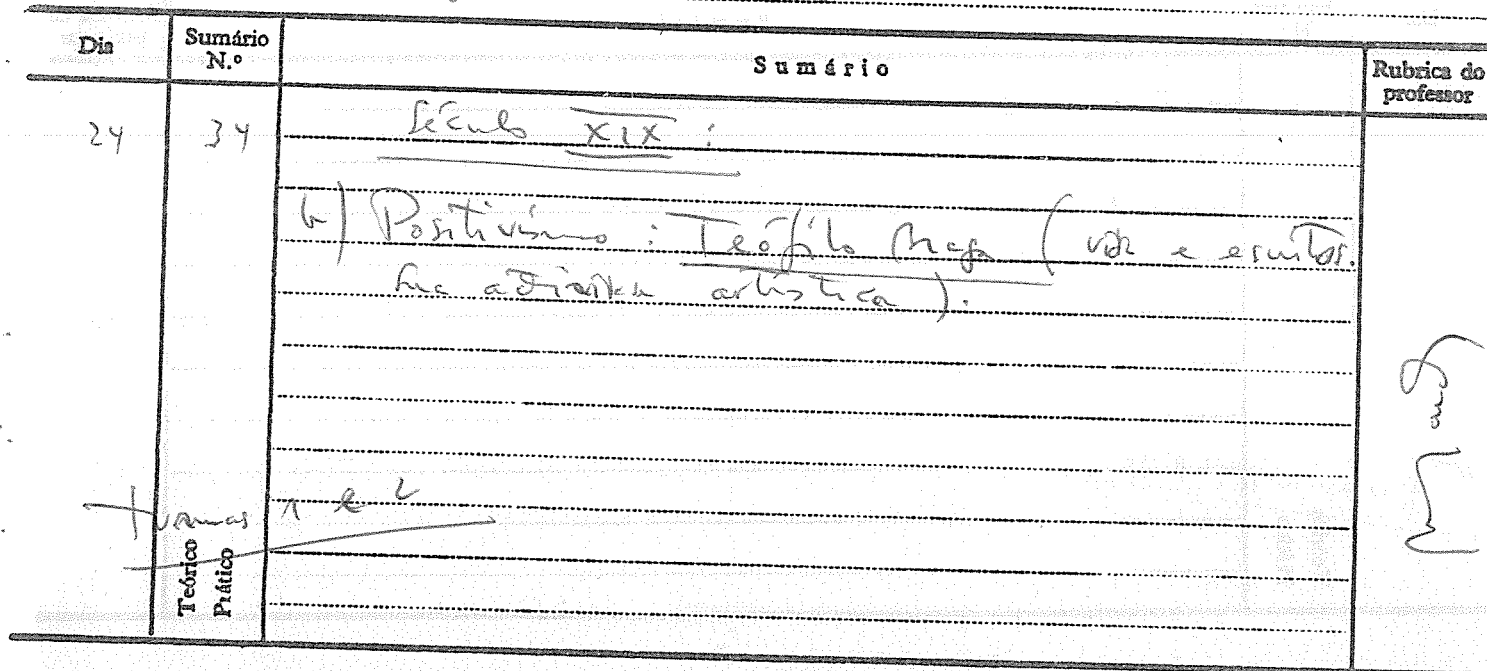 Dia Sumário N.º Sumário Rubrica do professor
24 34 Século XIX :
b) Positivismo : Teófilo Braga ( vida e escritos.
Sua artística ).
Turmas 1 e 2
Teórico
Prático